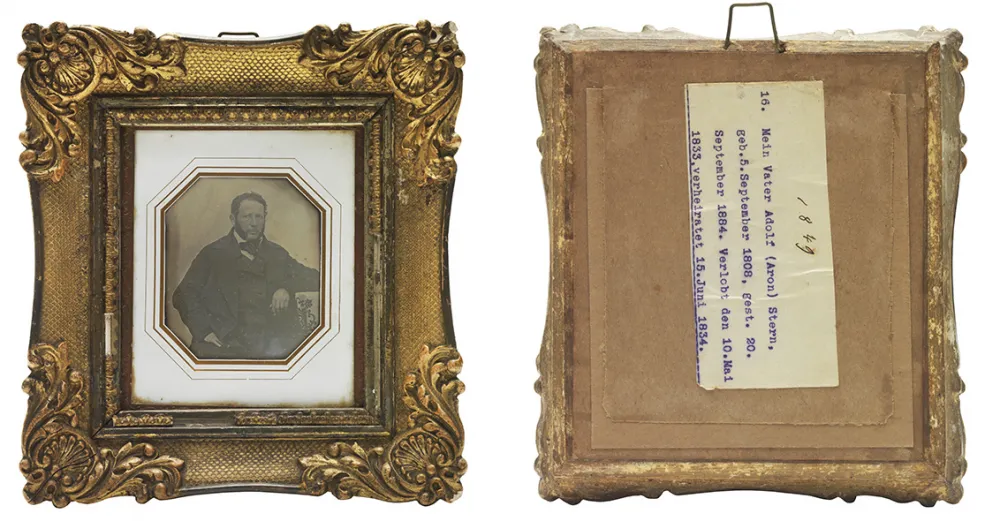 1849
16. Mein Vater Adolf (Aron) Stern,
geb.5.September 1808, gest. 20.
September 1884. Verlobt den 10.Mai
1833,verheiratet 15.Juni 1834.